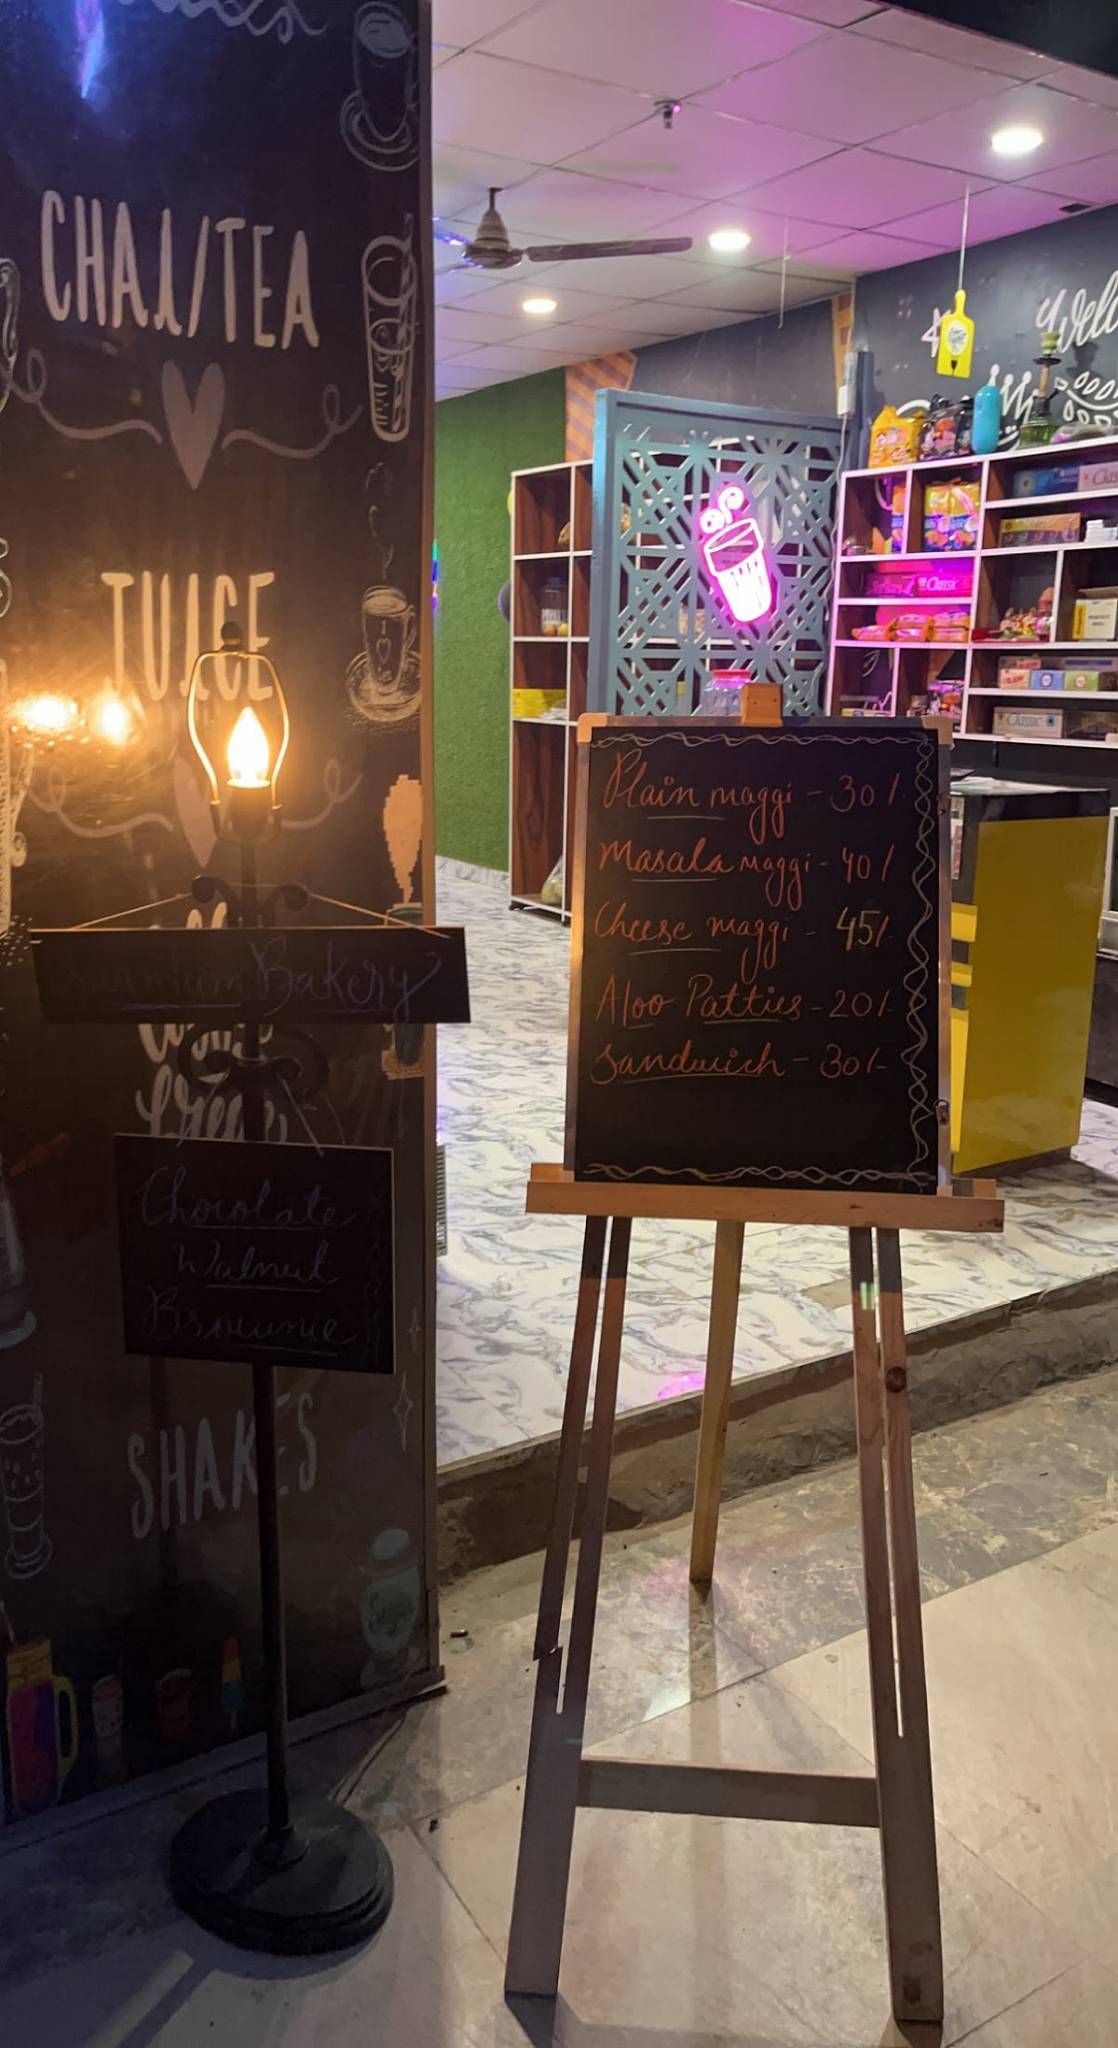 CHAI/TEA
JUICE
Bakery
Chocolate
Walnut
Brownie
SHAKES
Well
Plain maggi - 30/-
Masala maggi - 40/
Cheese maggi - 45/
Aloo Patties - 20/-
Sandwich - 30/-
Classic
Classic
Classic